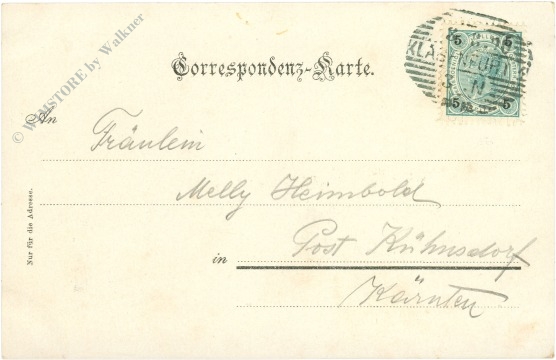 Correspondenz-Karte.
5 5
KLAGENFURT
N
5 5
An Fräulein
Melly Heimbold
in Post Kühnsdorf
Kärnten
Nur für die Adresse.
© by Walkner